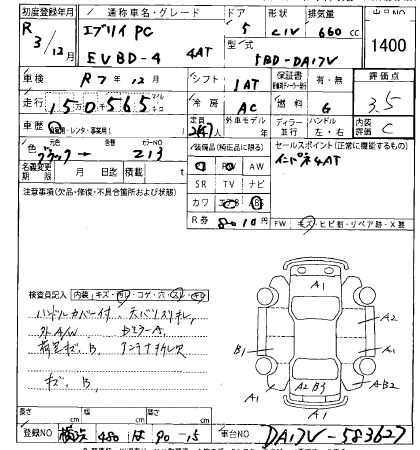 初度登録年月 通称車名・グレード ドア 形状 排気量 出品NO
R3/12月 エブリイ PC 5 C1V 660cc
EVBD-4 4AT 型式 5BD-DA17V 1400
車検 R7年12月 シフト 1AT 保証書 有・無 評価点
走行 150565 冷房 AC 燃料 G 3.5
車歴 自家用・レンタ・事業用 定員 人 外車モデル 年 ディーラー 並行 ハンドル 左・右 内装評価 C
色 元色 ブラック → 色替 カラーNO 213 装備品(純正品に限る) セールスポイント(正常に機能するもの)
名義変更期限 月 日迄 積載 t PS PW AW インパネ4AT
注意事項(欠品・修復・不具合箇所および状態) SR TV ナビ
カワ エアB
R券 8010円 FW キズ・ヒビ割・リペア跡・X要
検査員記入 内装 キズ・汚レ・コゲ・穴・スレ・
ハンドルカバー付 天バリスリキレ
社外A/W DミラーA
荷室キズ、B アンテナチヂレ欠
キズ、B
A1
A2
B1
A1 A2 B3 A-B2
A1
長さ cm 幅 cm 高さ cm
登録NO 横浜 480 は 90-15 車台NO DA17V-583627